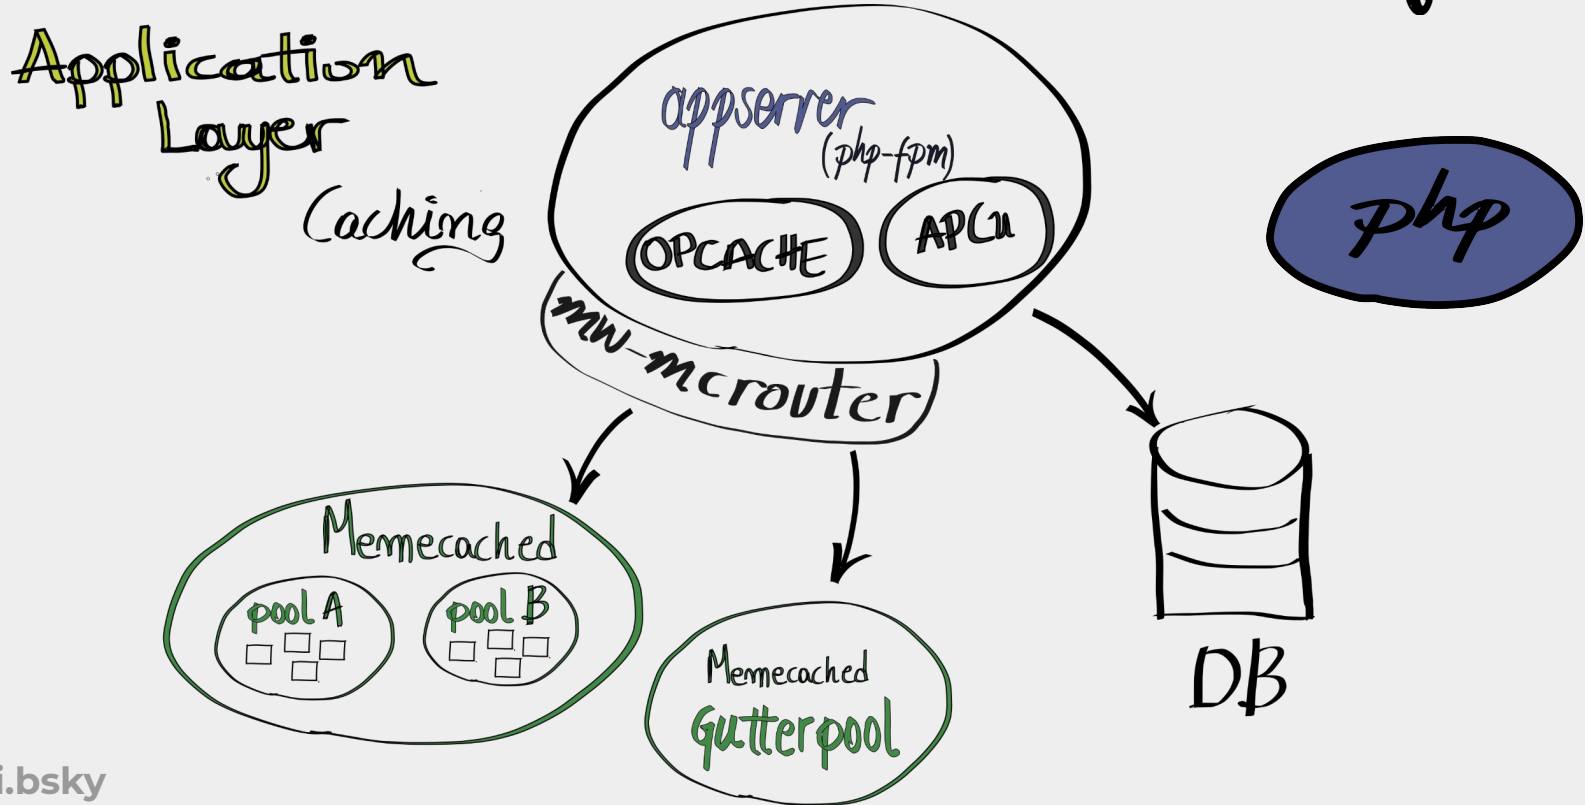 Application
Layer
Caching
appserver
(php-fpm)
OPCACHE
APCu
php
mw-mcrouter
Memecached
pool A
pool B
Memecached
Gutterpool
DB
i.bsky